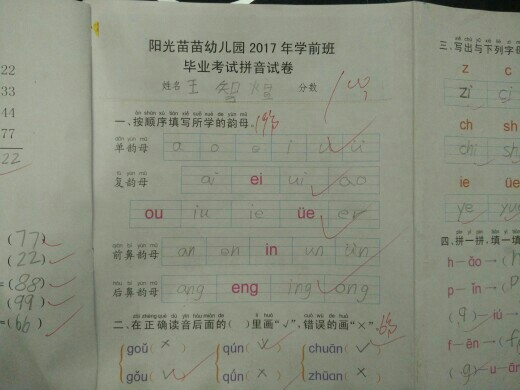 22
33
44
77
22
(77)
(22)
=(88)
(99)
=(66)
阳光苗苗幼儿园2017年学前班
毕业考试拼音试卷
姓名 王智煜 分数 100
一、按顺序填写所学的韵母。
单韵母 a o e i u ü
复韵母 ai ei ui ao
ou iu ie üe er
前鼻韵母 an en in un ün
后鼻韵母 ang eng ing ong
二、在正确读音后面的( )里画"√",错误的画"×"。
goǔ(×) qún(√) chuān(√)
gǒu(√) qǘn(×) zhüɑn(×)
三、写出与下列字母
z c
zi ci
ch sh
chi sh
ie üe
ye yue
四、拼一拼,填一填
h—ǎo→(h
p—īn→(p
(q)—iú→
f—ēn→(f
(g)—u—ān